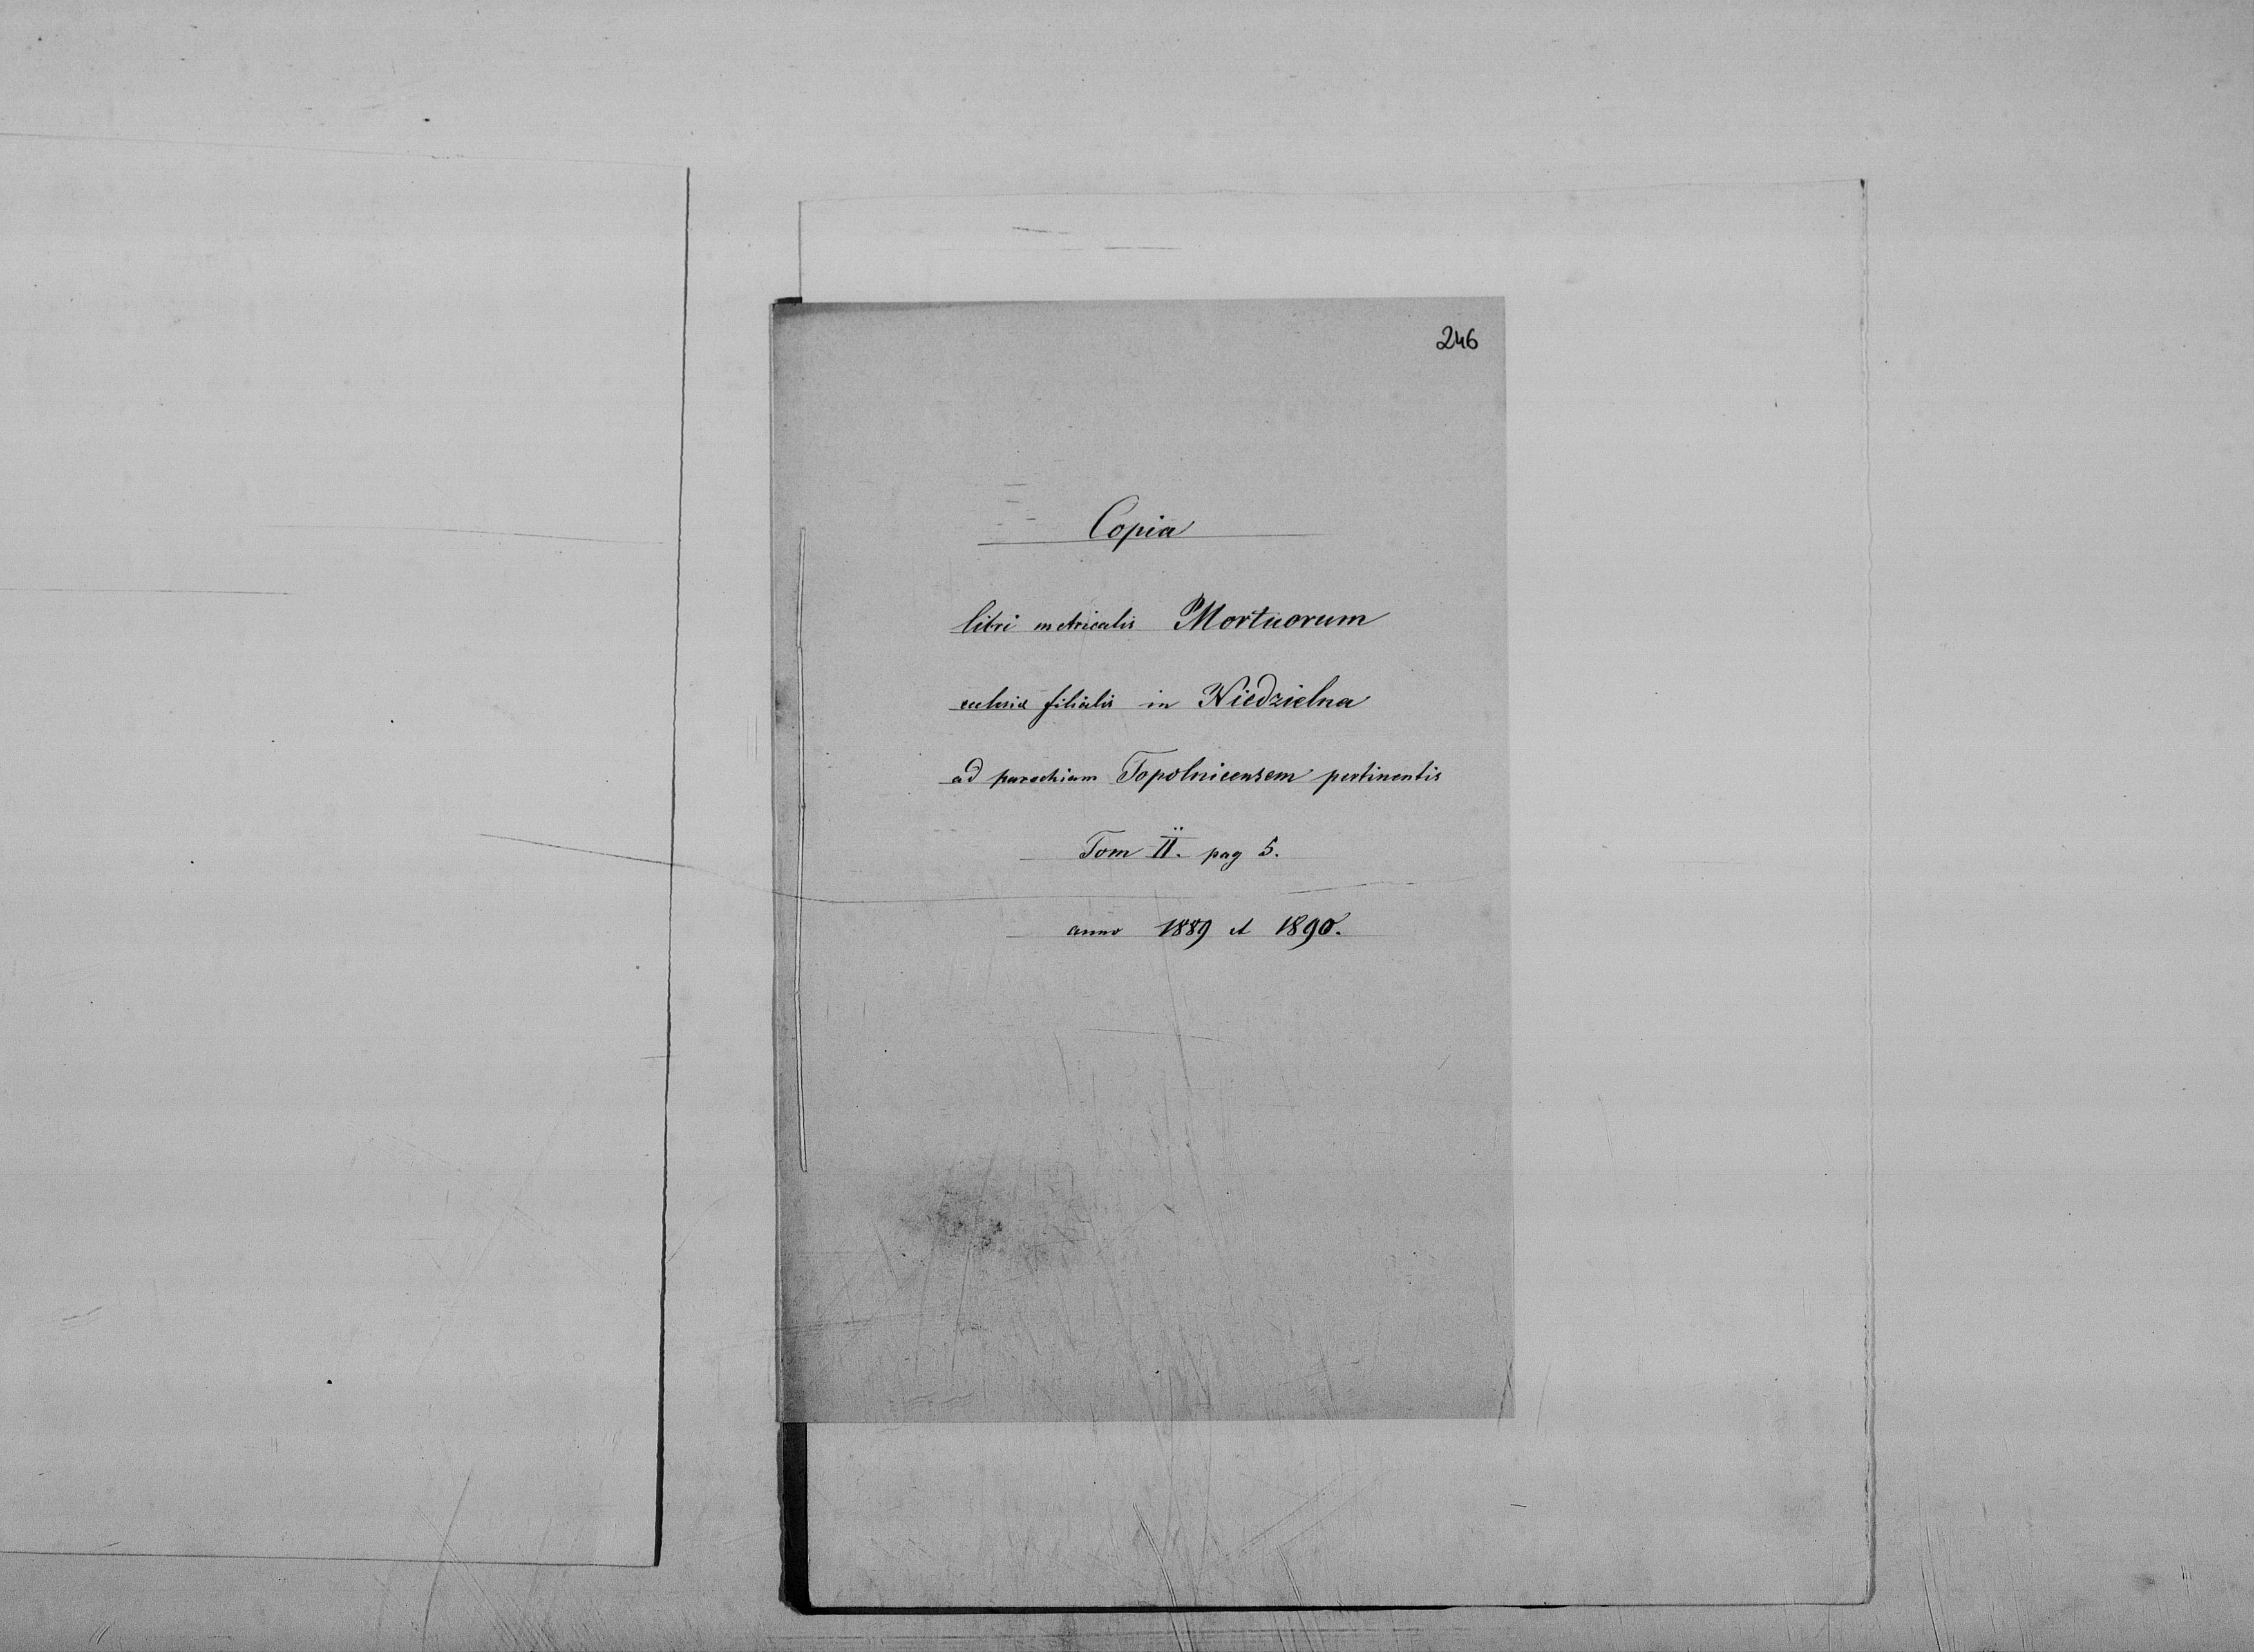 246
Copia
libri metricalis Mortuorum
ecclesiæ filialis in Niedzielna
ad parochiam Topolnicensem pertinentis
Tom II. pag 5.
anno 1889 et 1890.